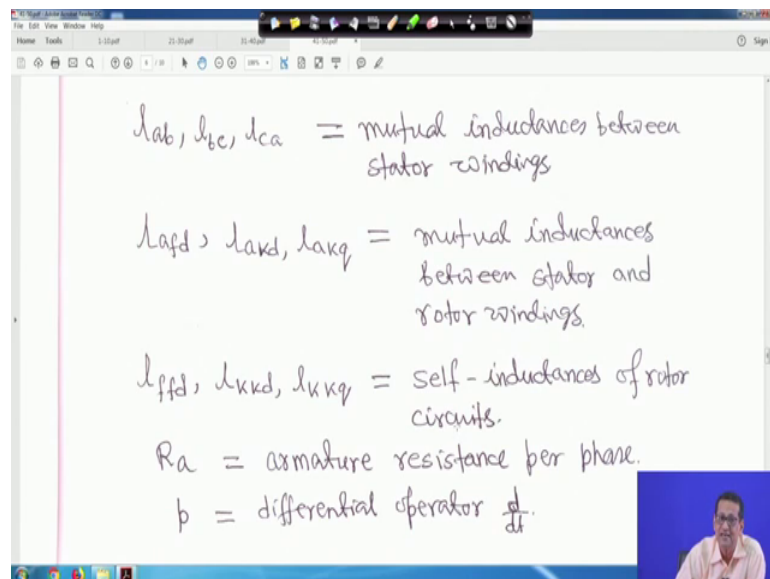 File Edit View Window Help
Home Tools 1-10.pdf 21-30.pdf 31-40.pdf 41-50.pdf × Sign
lab, lbc, lca = mutual inductances between
stator windings
lafd, lakd, lakq = mutual inductances
between stator and
rotor windings.
lffd, lkkd, lkkq = self-inductances of rotor
circuits.
Ra = armature resistance per phase.
p = differential operator d/dt.